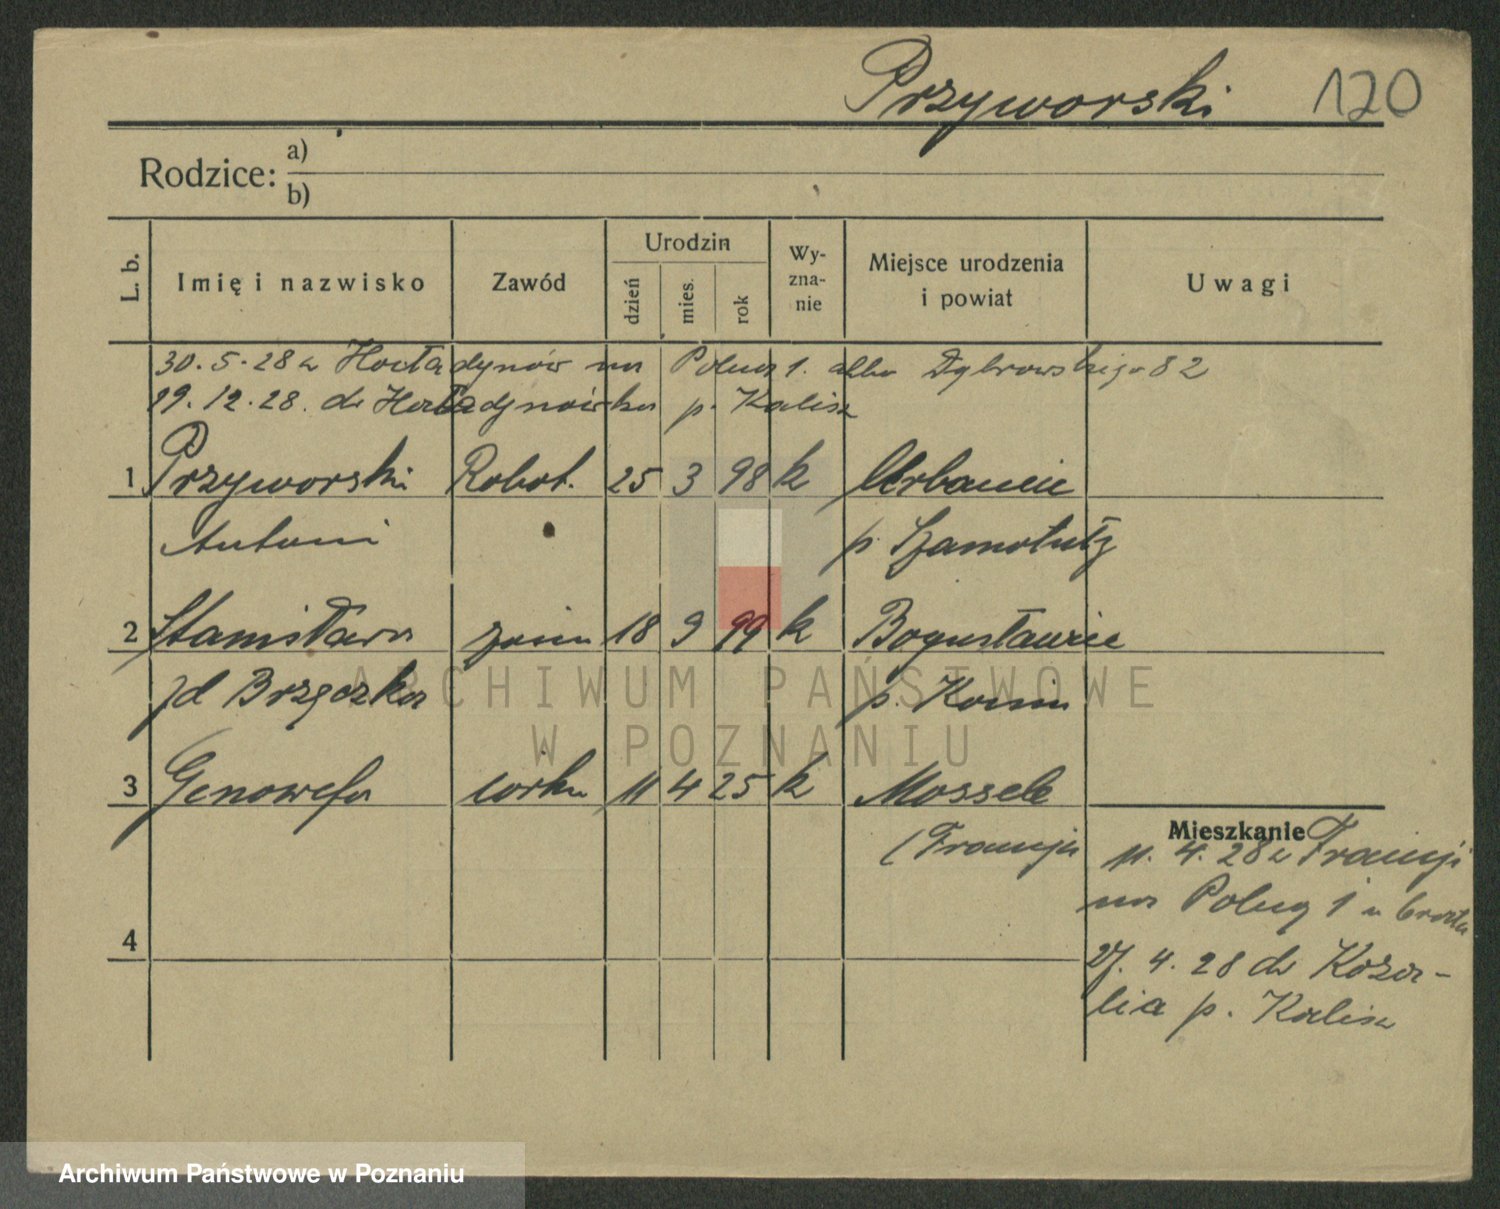 Przyworski 120
Rodzice: a)
b)
L. b. Imię i nazwisko Zawód Urodzin dzień mies. rok Wy-zna-nie Miejsce urodzenia i powiat Uwagi
30.5.28 z na Polna 1. albo Dąbrowskiego 82
19.12.28. do p. Kalisz
1 Przyworski Robot. 25 3 98 k Urbanie
Antoni p. Szamotuły
2 Stanisława żona 18 9 99 k Bogusławice
zd Brzęczka p. Konin
3 Genowefa córka 11 4 25 k Mossele
(Francja
Mieszkanie
11. 4. 28 z Francji
na Polną 1 u brata
4
27. 4. 28 do Koza-
lia p. Kalisz
ARCHIWUM PAŃSTWOWE
W POZNANIU
Archiwum Państwowe w Poznaniu